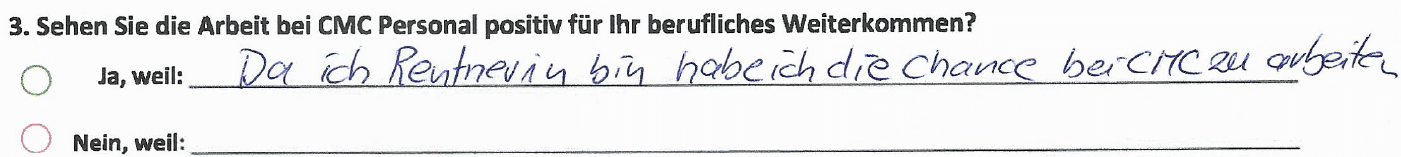 3. Sehen Sie die Arbeit bei CMC Personal positiv für Ihr berufliches Weiterkommen?
Ja, weil: Da ich Rentnerin bin habe ich die Chance bei CMC zu arbeiten
Nein, weil: